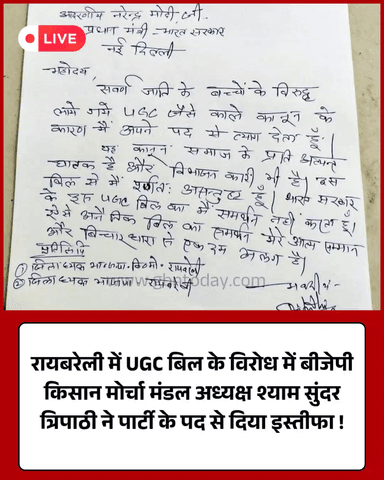 आदरणीय नरेन्द्र मोदी जी
LIVE
प्रधान मंत्री - भारत सरकार
नई दिल्ली
महोदय,
सवर्ण जाति के बच्चों के विरुद्ध
लाये गये UGC जैसे काले कानून के
कारण मैं अपने पद से त्याग देता हूँ।
यह कानून समाज के प्रति अत्यन्त
घातक है और विभाजन कारी भी है। इस
बिल से मैं पूर्णतः असन्तुष्ट हूँ। भारत सरकार
के इस UGC बिल का मैं समर्थन नहीं करता हूँ।
ऐसे अनैतिक बिल का समर्थन मेरे आत्म सम्मान
और विचार धारा से एकदम अलग है।
प्रतिलिपि
① जिलाध्यक्ष भाजपा-किसान रायबरेली
② जिलाध्यक्ष भाजपा रायबरेली
www.ghntoday.com
रायबरेली में UGC बिल के विरोध में बीजेपी
किसान मोर्चा मंडल अध्यक्ष श्याम सुंदर
त्रिपाठी ने पार्टी के पद से दिया इस्तीफा !